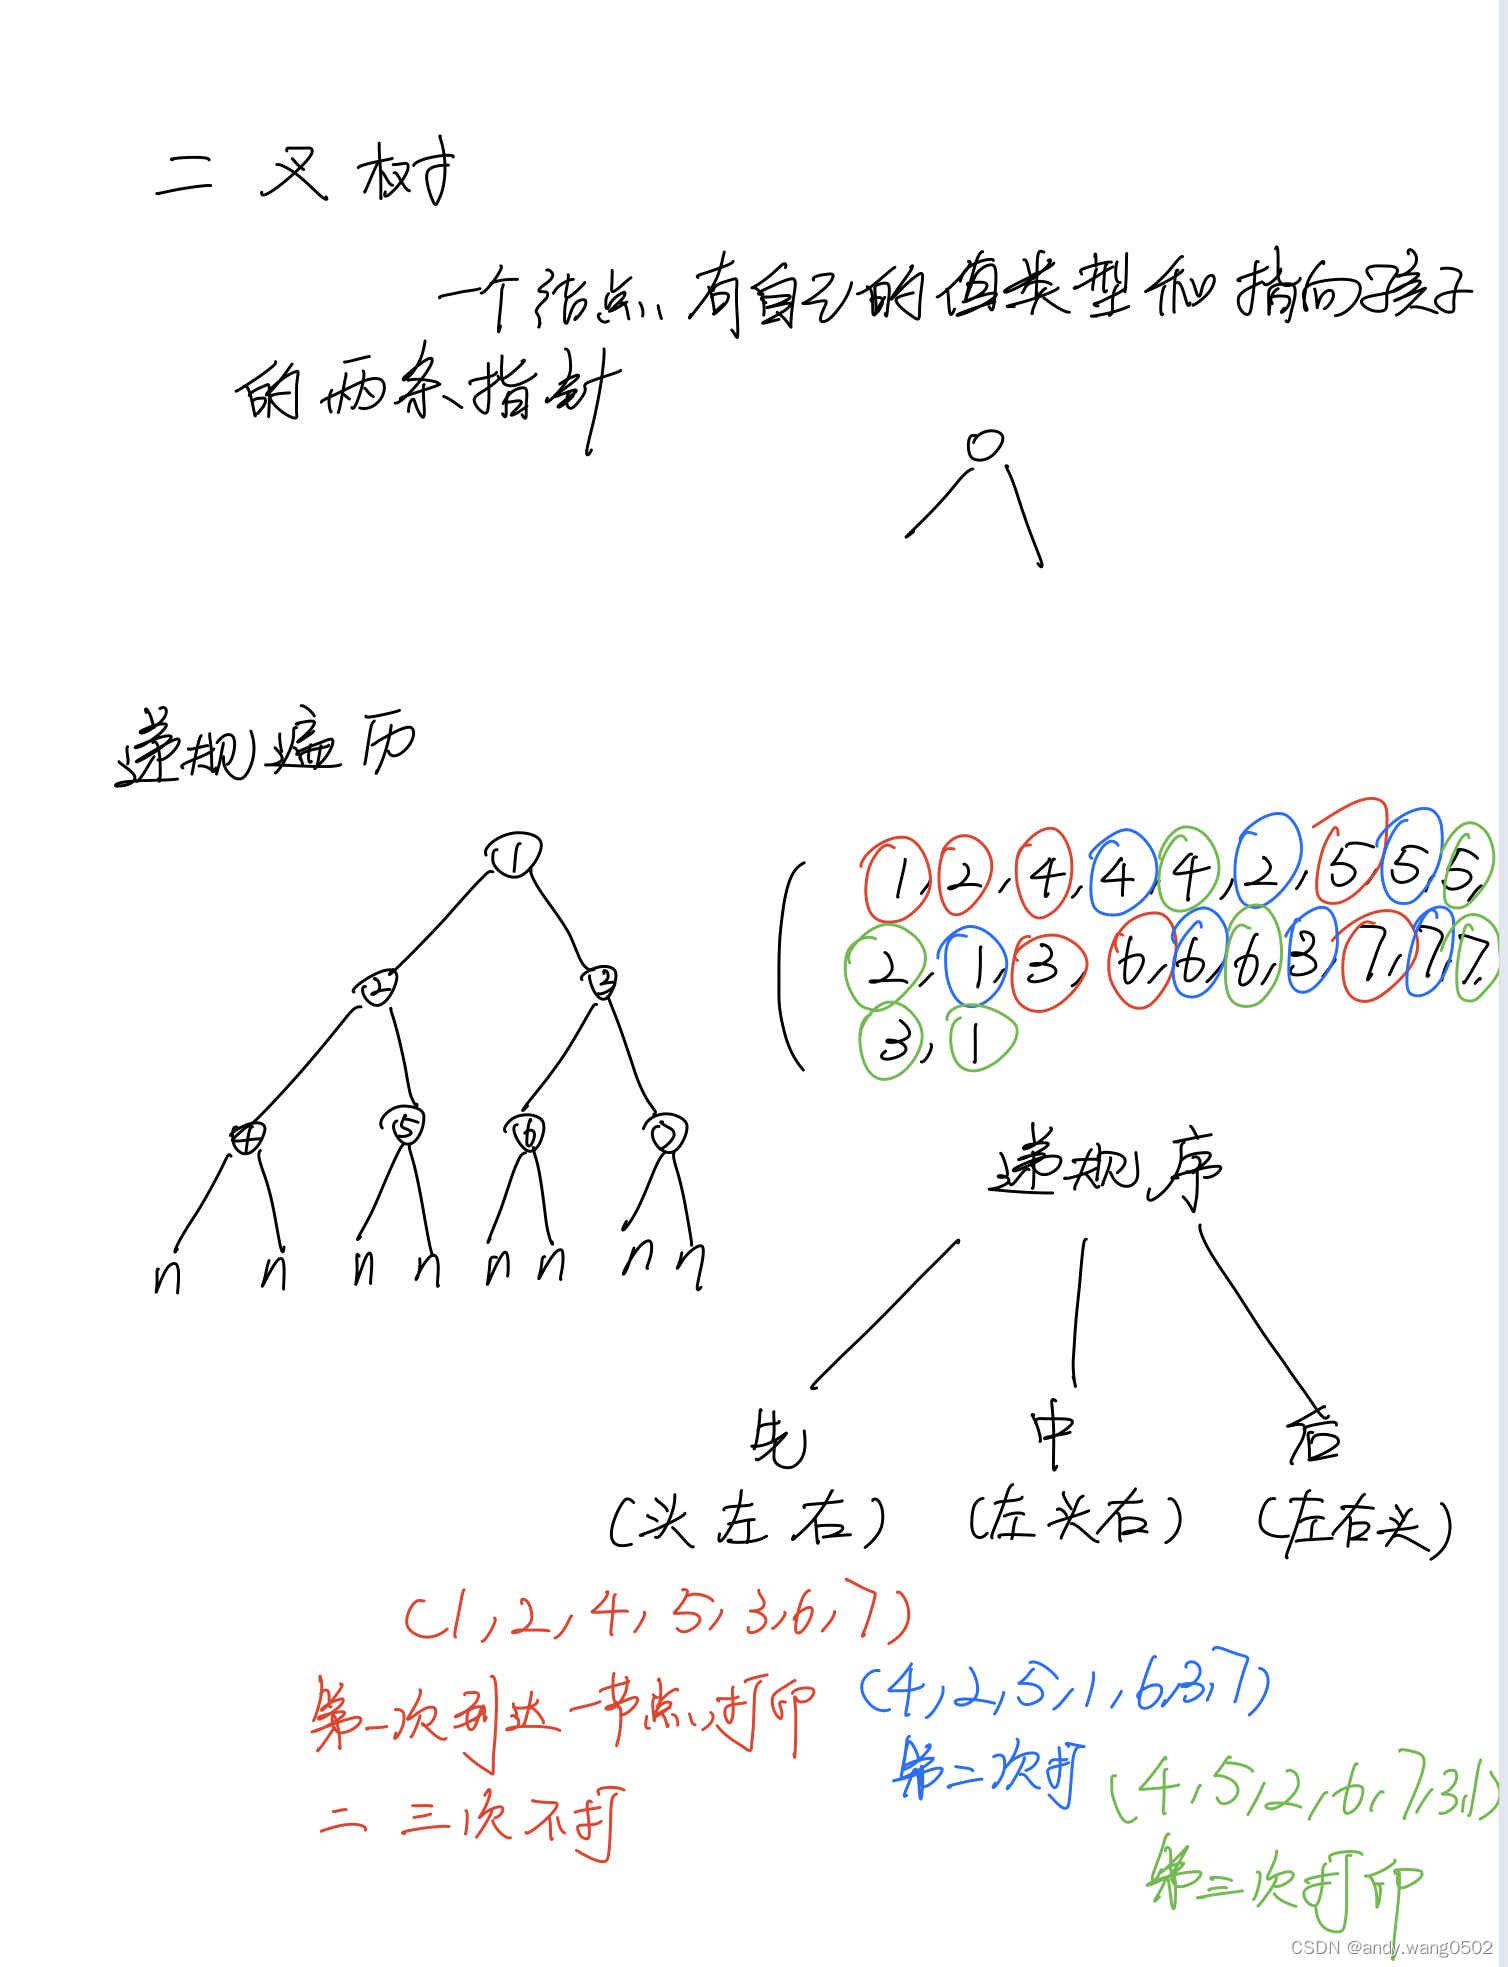 二叉树
一个结点、有自己的值类型和指向孩子
的两条指针
递规遍历
1
2 3
4 5 6 7
n n n n n n n n
(1,2,4,4,4,2,5,5,5,
2,1,3,6,6,6,3,7,7,7,
3,1
递规序
先 中 后
(头左右) (左头右) (左右头)
(1,2,4,5,3,6,7)
第一次到达一节点、打印
二 三次不打
(4,2,5,1,6,3,7)
第二次打
(4,5,2,6,7,3,1)
第三次打印
CSDN @andy.wang0502